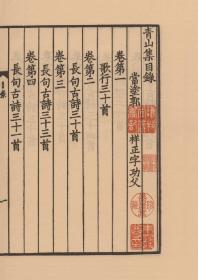 青山集目錄
當塗郭祥正字功父
卷第一
歌行三十首
卷第二
長句古詩三十一首
卷第三
長句古詩三十三首
卷第四
長句古詩三十一首